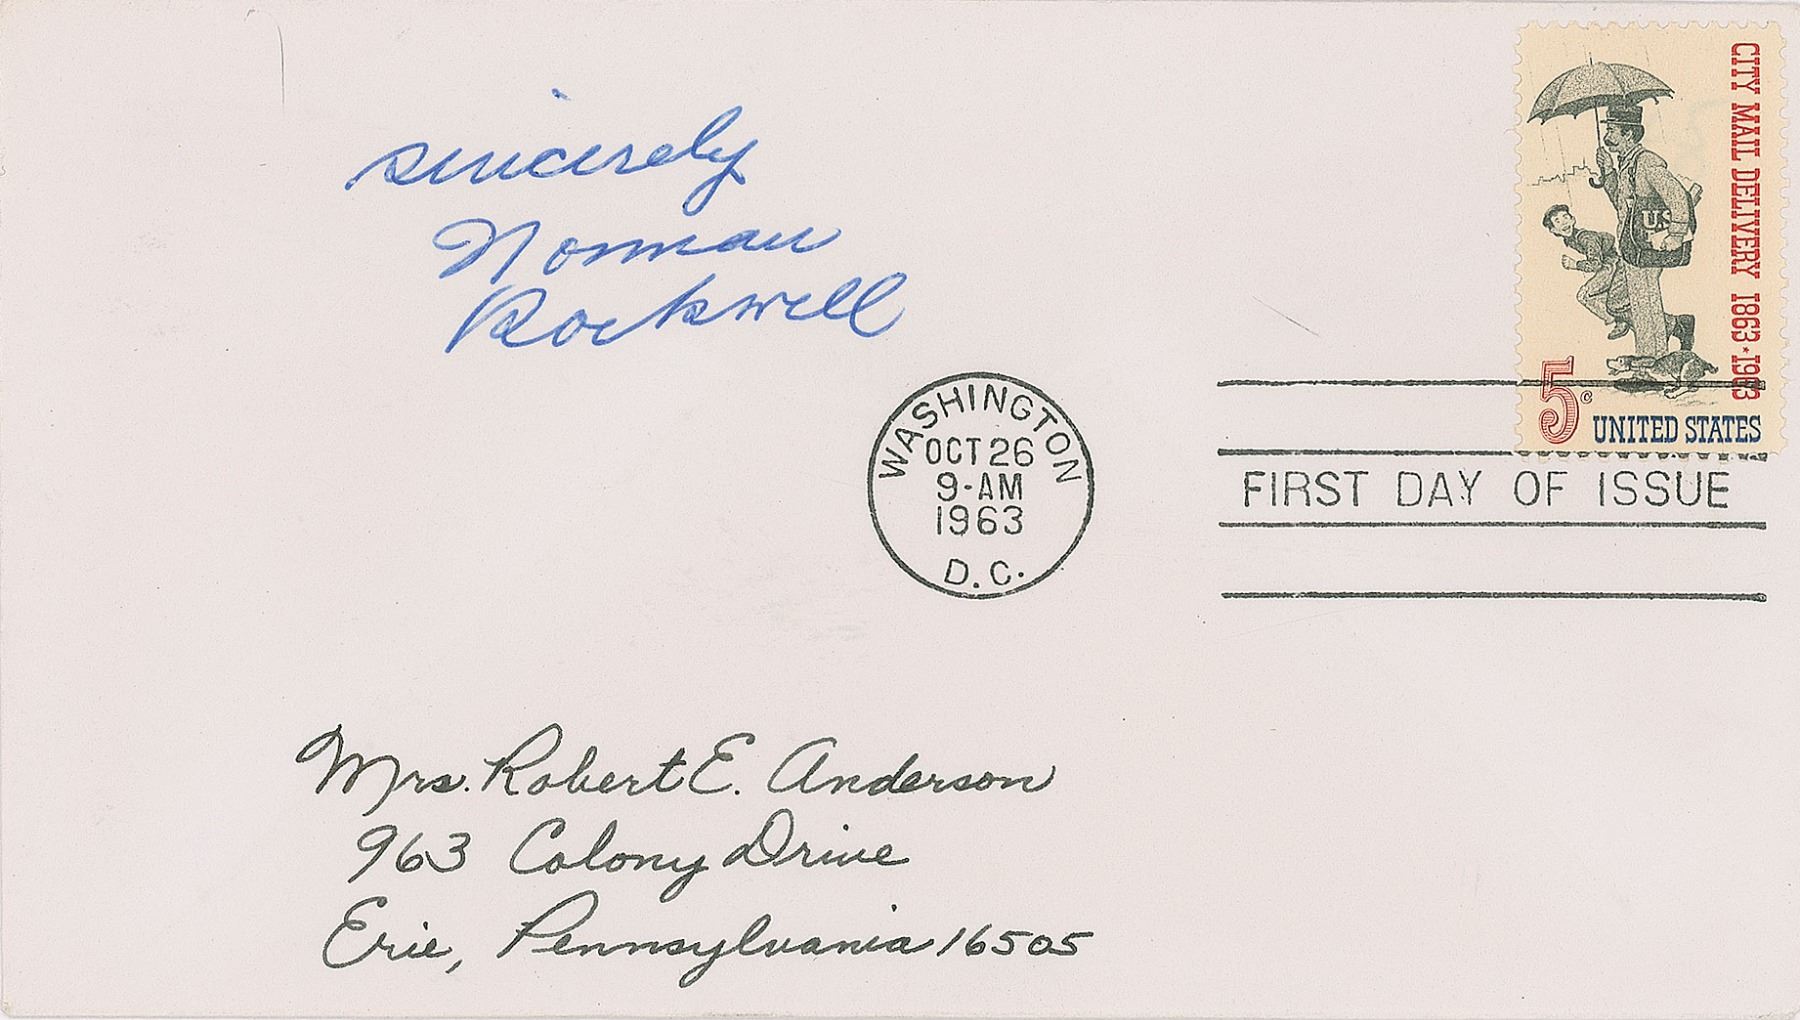 sincerely
Norman
Rockwell
CITY MAIL DELIVERY 1863★1963
U.S.
5c
UNITED STATES
WASHINGTON
OCT 26
9-AM
1963
D.C.
FIRST DAY OF ISSUE
Mrs. Robert E. Anderson
963 Colony Drive
Erie, Pennsylvania 16505